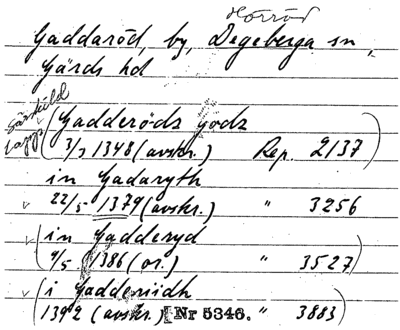 Hörröd
Gaddaröd, by, Degeberga sn,
Gärds hd
särskild
lapp
(Gadderödz godz
3/7 1348 (avskr.) Rep. 2137)
in Gadaryth
√ 22/5 1379 (avskr.) " 3256
√ (in Gadderyd
9/5 1386 (or.) " 3527)
√ (i Gadderiidh
1392 (avskr.) [Nr 5346. " 3883)